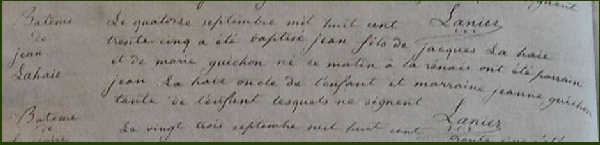 Bateme
de
jean
Lahaie
Le quatorze septembre mil huit cent Lanier
trente cinq a été baptisé jean fils de jacques La haie
et de marie guichon né ce matin à la rénais ont été parrain
jean La haie oncle de l'enfant et marraine jeanne guichon
tante de l'enfant lesquels ne signent
Bateme
de
Le vingt trois septembre mil huit cent Lanier